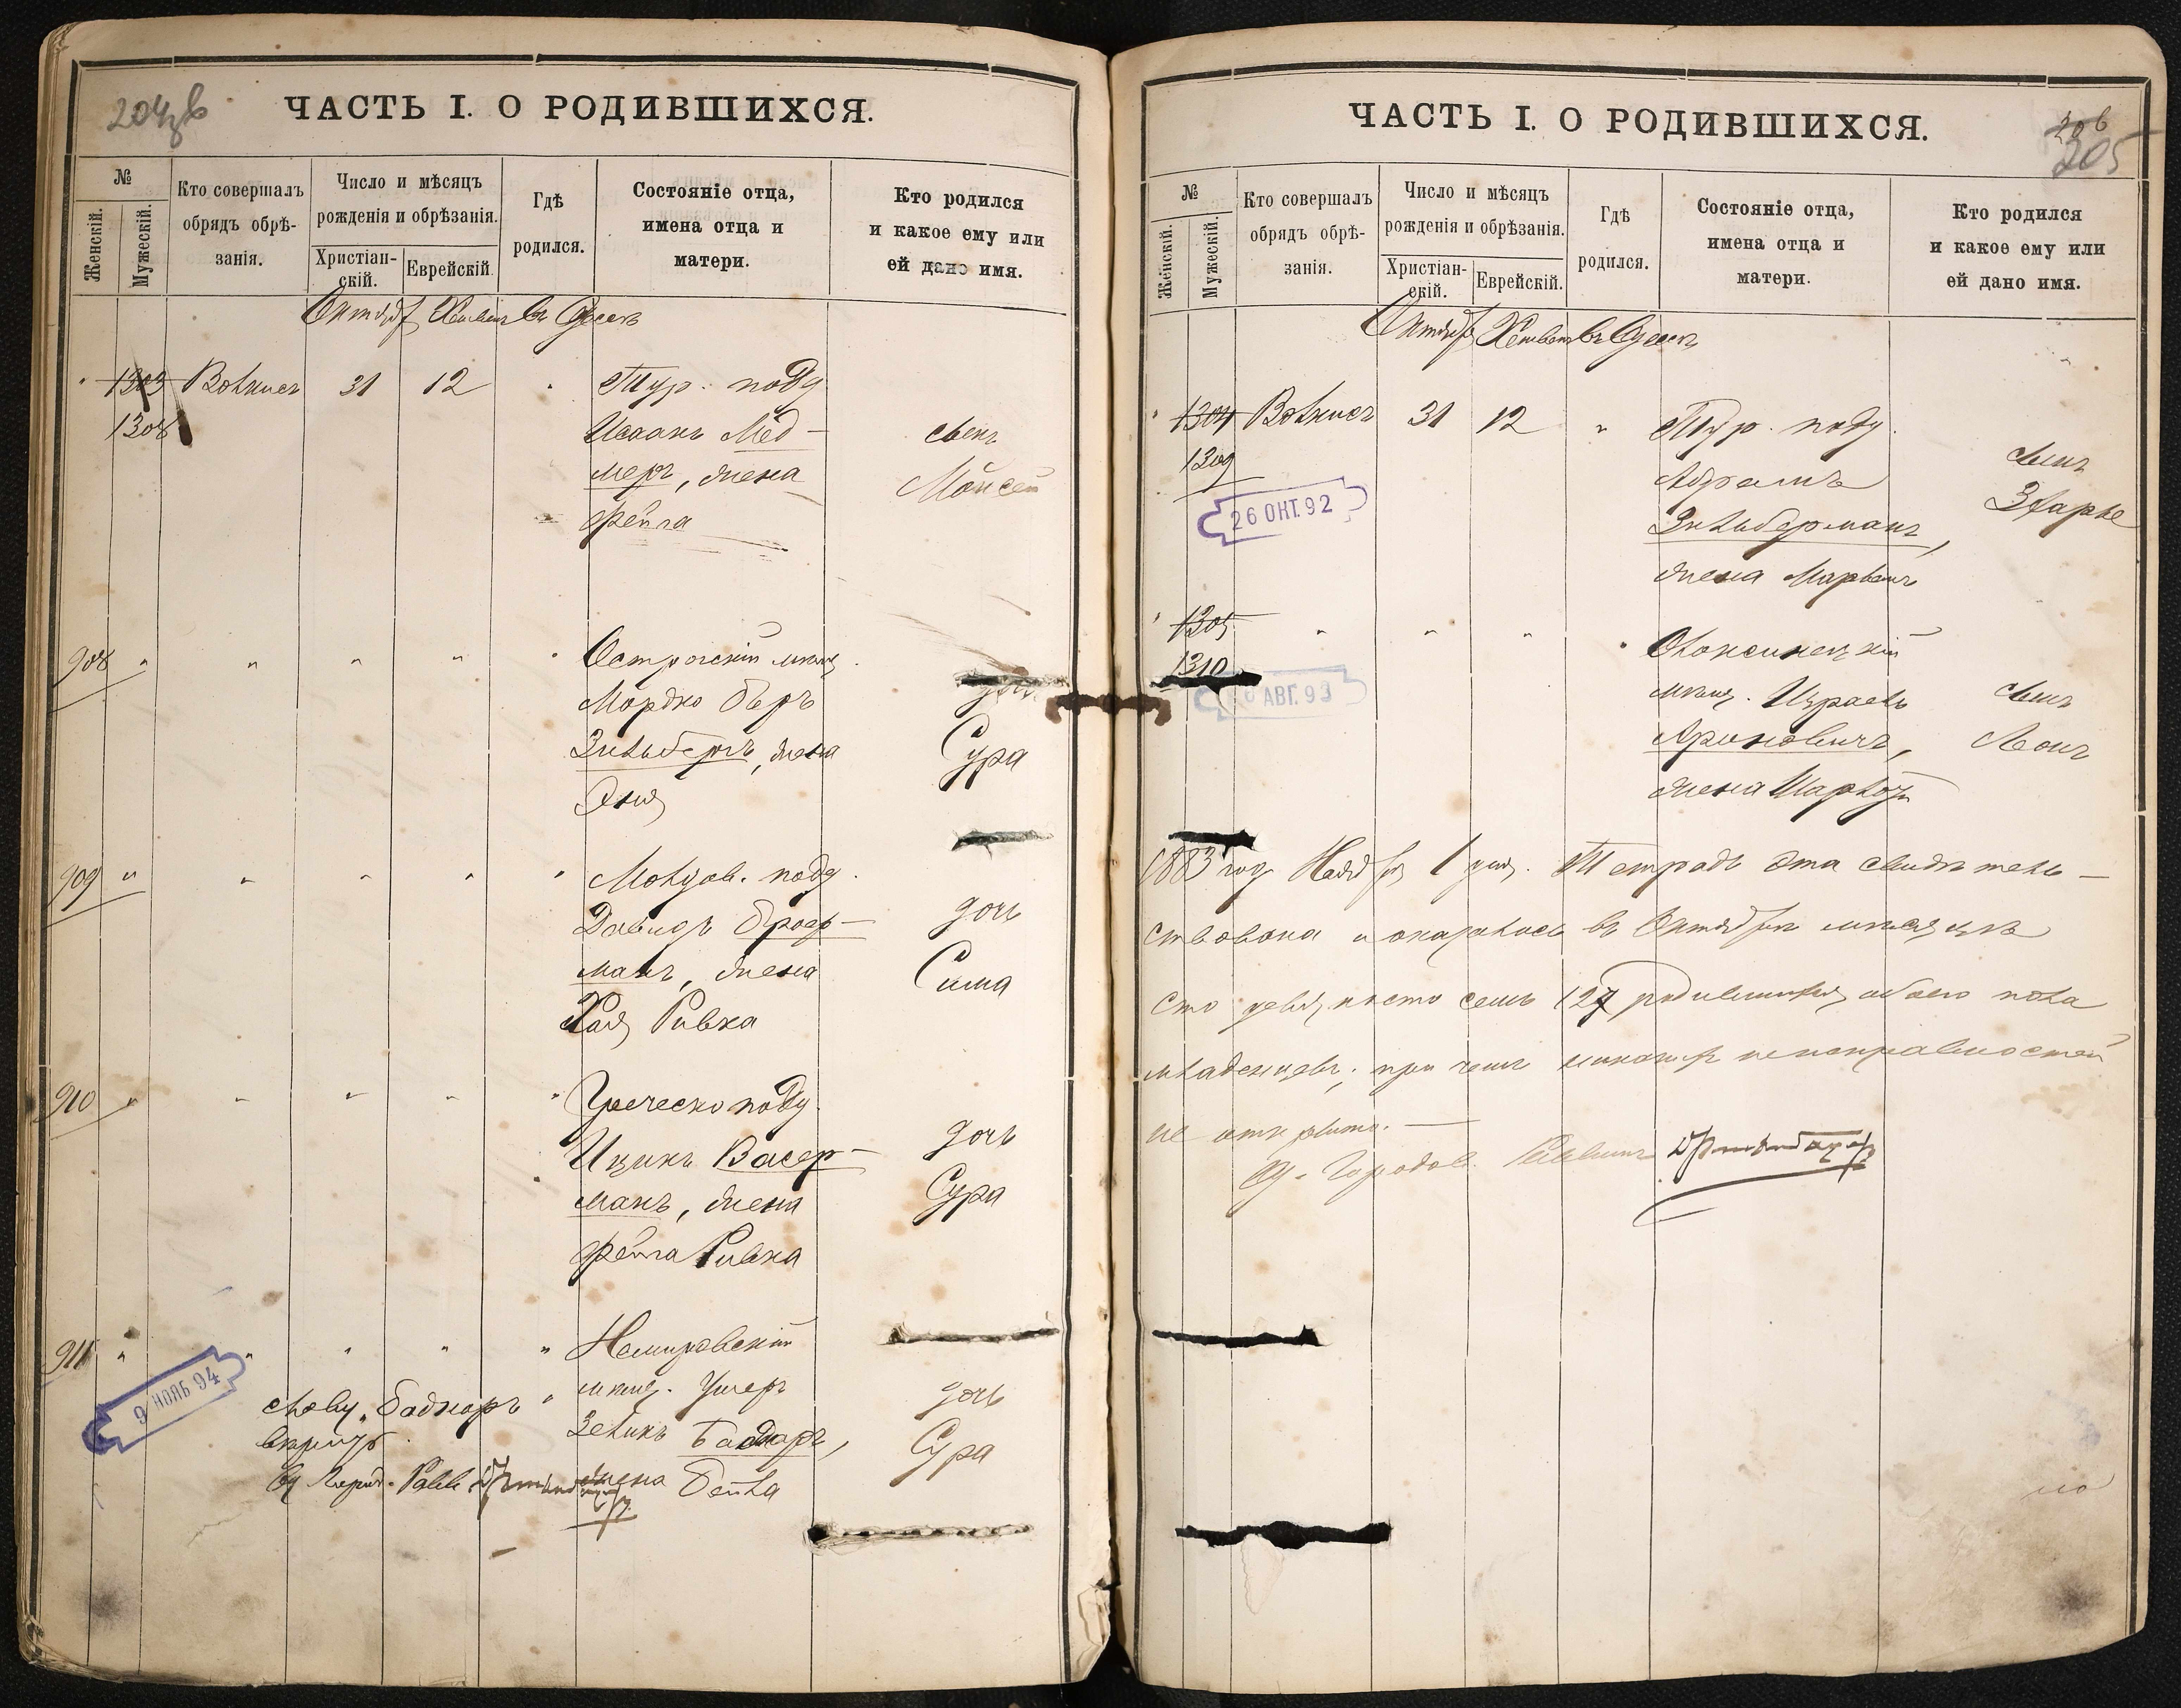 ЧАСТЬ I. О РОДИВШИХСЯ.
№
Женскій.
Мужескій.
Кто совершалъ
обрядъ обрѣ-
занія.
Число и мѣсяцъ
рожденія и обрѣзанія.
Христіан-
скій.
Еврейскій.
Гдѣ
родился.
Состояніе отца,
имена отца и
матери.
Кто родился
и какое ему или
ей дано имя.
Октябрь Хешванъ въ Одессѣ
1303 31 12 Тур. подд
1308
Исаакъ Мед-
меръ, жена
Фейга
сынъ
Мойсей
908 Острожскій мѣщ.
Мордко Беръ
Зильбергъ, жена
Эня
Сура
909 Молдов. подд.
Давидъ Броер-
манъ, жена
Хая Ривка
дочь
Сима
910 Греческо подд.
Ицикъ Васер-
манъ, жена
Фейга Ривка
дочь
Сура
911 Немировскій
мѣщ. Ушеръ
Зеликъ Баднаръ,
жена Бейла
дочь
Сура
9 НОЯБ 94
слову „Баднаръ"
вѣрить
ЧАСТЬ I. О РОДИВШИХСЯ.
305
№
Женскій.
Мужескій.
Кто совершалъ
обрядъ обрѣ-
занія.
Число и мѣсяцъ
рожденія и обрѣзанія.
Христіан-
скій.
Еврейскій.
Гдѣ
родился.
Состояніе отца,
имена отца и
матери.
Кто родился
и какое ему или
ей дано имя.
Октябрь Хешванъ въ Одессѣ
1304 31 12 Тур. подд.
1309
26 ОКТ. 92
Абрамъ
Зильберманъ,
жена
сынъ
1305
1310
АВГ. 93
мѣщ. Израель
Ароновичъ,
жена
сынъ
Леонъ
1883 год Ноября 1 дня. Тетрадь эта свидѣтель-
ствована и оказалось въ Октябрѣ мѣсяцѣ
сто девяносто семь 197 родившихся обоего пола
младенцевъ, при чемъ никакихъ неисправностей
не открыто. —
Од. Городов. Раввинъ